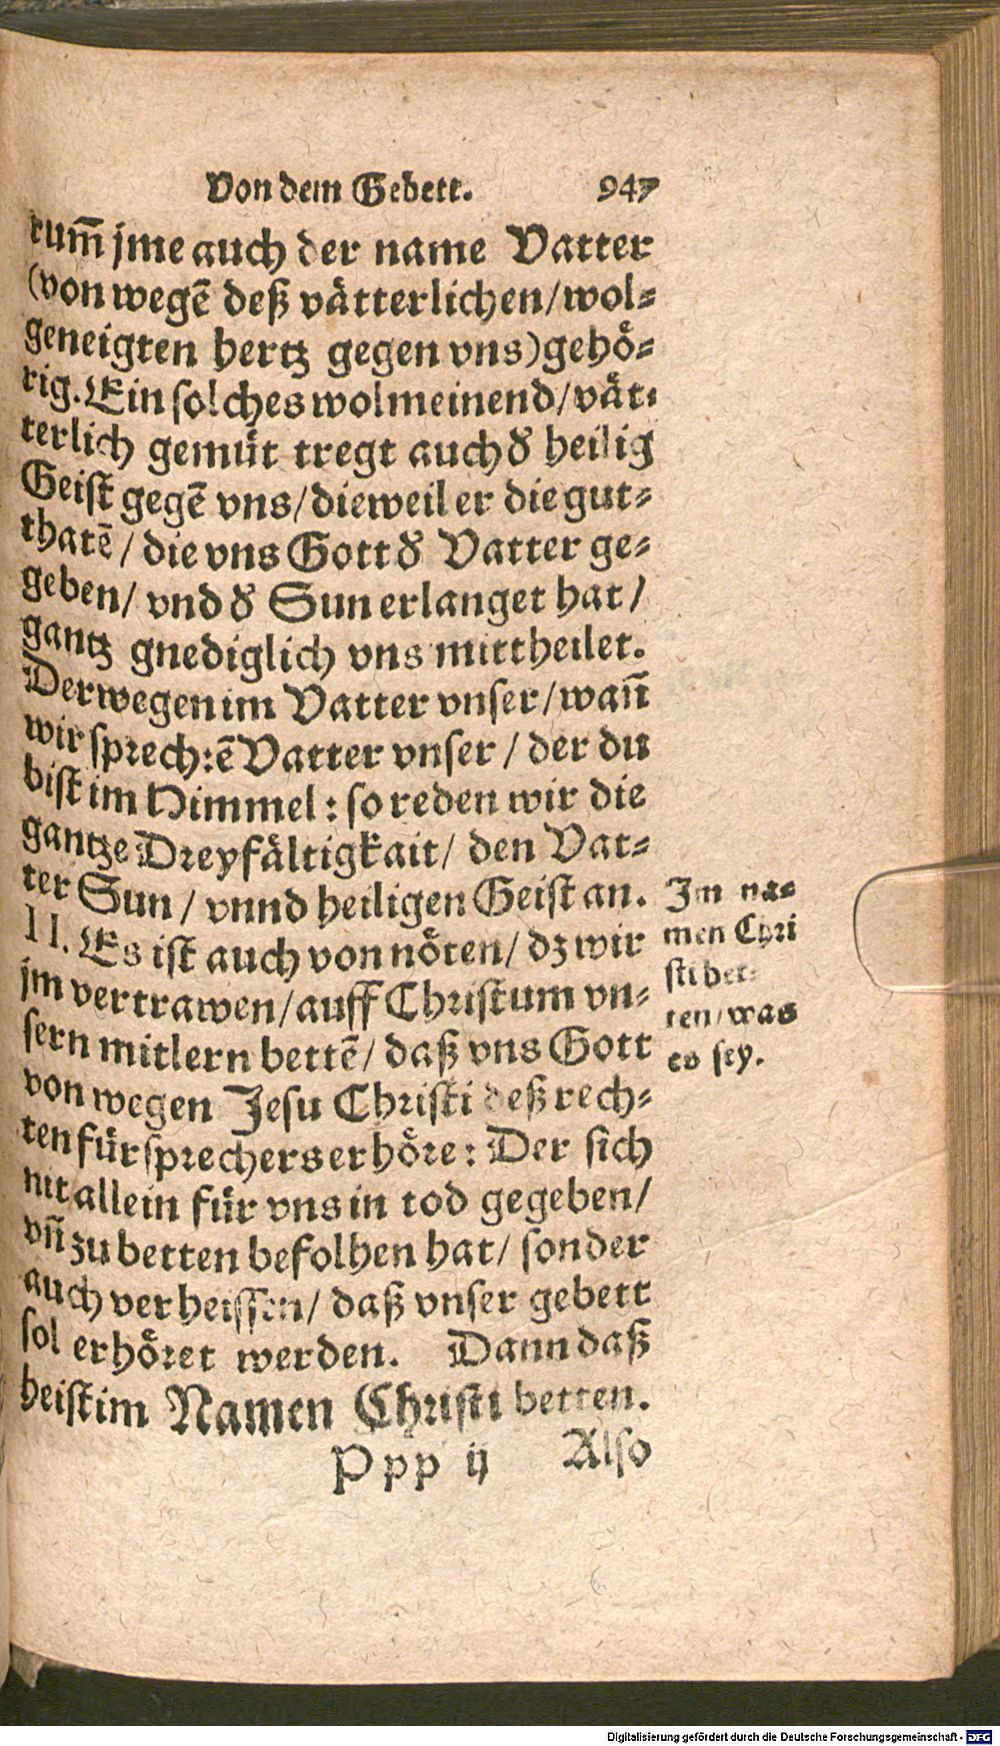 Von dem Gebett. 947
rum̃ jme auch der name Vatter
(von wegẽ deß vätterlichen/wol⸗
geneigten hertz gegen vns)gehö⸗
rig. Ein solches wolmeinend/vät⸗
terlich gemüt tregt auch d' heilig
Geist gegẽ vns/dieweil er die gut⸗
thatẽ/die vns Gott d' Vatter ge⸗
geben/vnd d' Sun erlanget hat/
gantz gnediglich vns mittheilet.
Derwegen im Vatter vnser/wañ
wir sprechẽ Vatter vnser/der du
bist im Himmel: so reden wir die
gantze Dreyfältigkait/den Vat⸗
ter Sun/vnnd heiligen Geist an.
II. Es ist auch von nöten/dz wir
jm vertrawen/auff Christum vn⸗
sern mitlern bettẽ/daß vns Gott
von wegen Jesu Christi deß rech⸗
ten fürsprechers erhöre: Der sich
nit allein für vns in tod gegeben/
vñ zu betten befolhen hat/sonder
auch verheissen/daß vnser gebett
sol erhöret werden. Dann daß
heist im Namen Christi betten.
Ppp ij Also
Im na⸗
men Chri
sti bet⸗
ten/was
es sey.
Digitalisierung gefördert durch die Deutsche Forschungsgemeinschaft - DFG